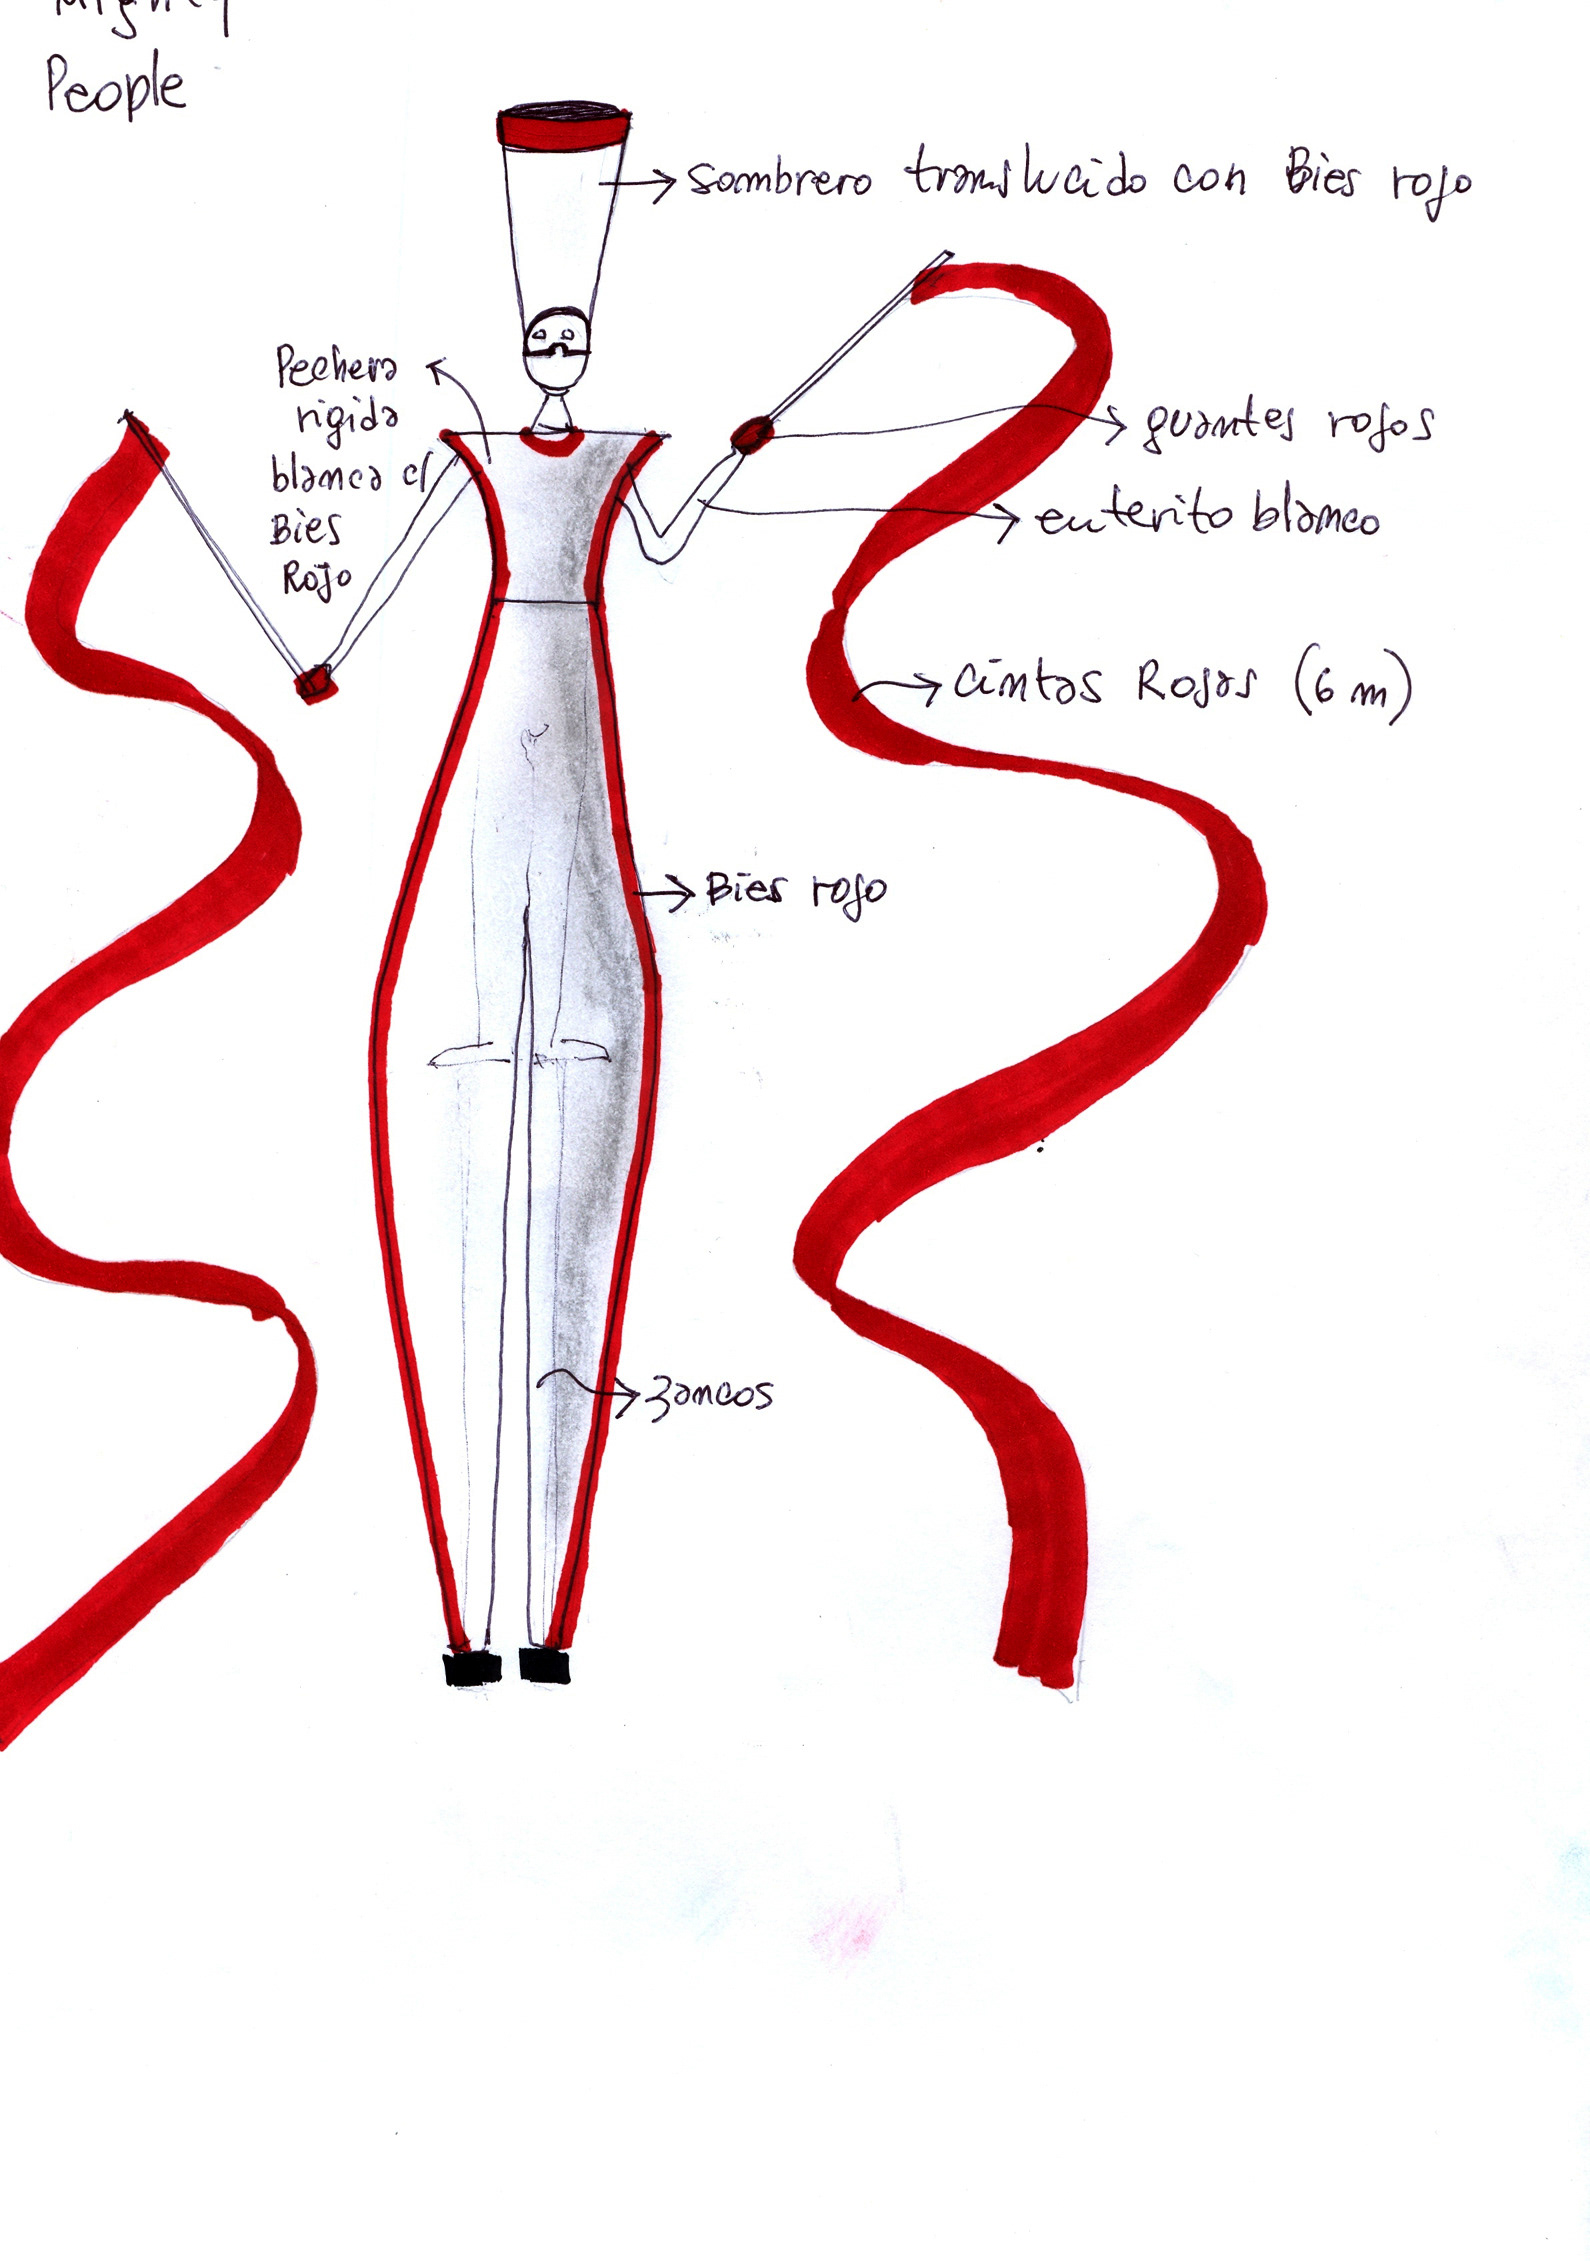 People
sombrero translucido con Bies rojo
Pechera
rigida
blanca c/
Bies
Rojo
guantes rojos
enterito blanco
cintas Rojas (6 m)
Bies rojo
zancos